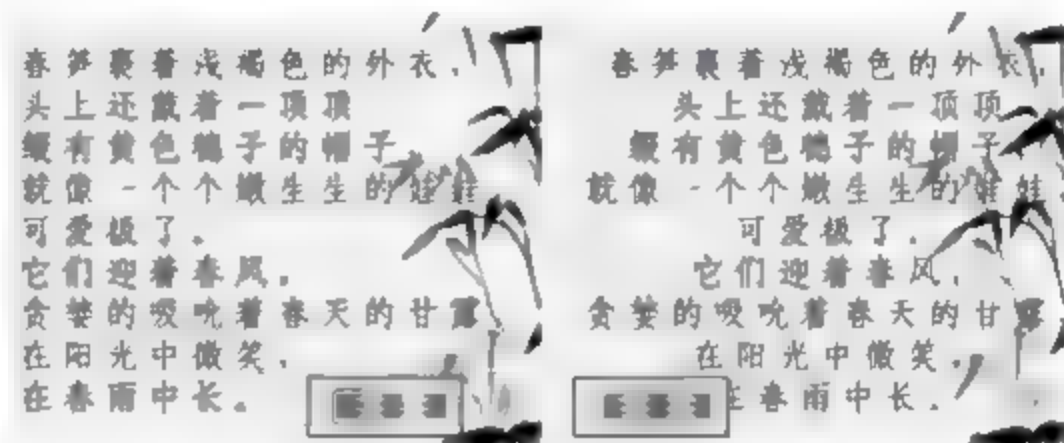 春笋裹着浅褐色的外衣，
头上还戴着一顶顶
缀有黄色穗子的帽子
就像一个个嫩生生的娃娃
可爱极了。
它们迎着春风。
贪婪的吸吮着春天的甘露
在阳光中微笑，
在春雨中长。
春笋裹着浅褐色的外衣，
头上还戴着一顶顶
缀有黄色穗子的帽子
就像一个个嫩生生的娃娃
可爱极了。
它们迎着春风，
贪婪的吸吮着春天的甘露
在阳光中微笑，
春雨中长。